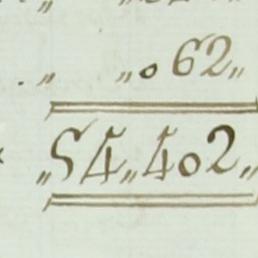 „ „o62„
„54„402„